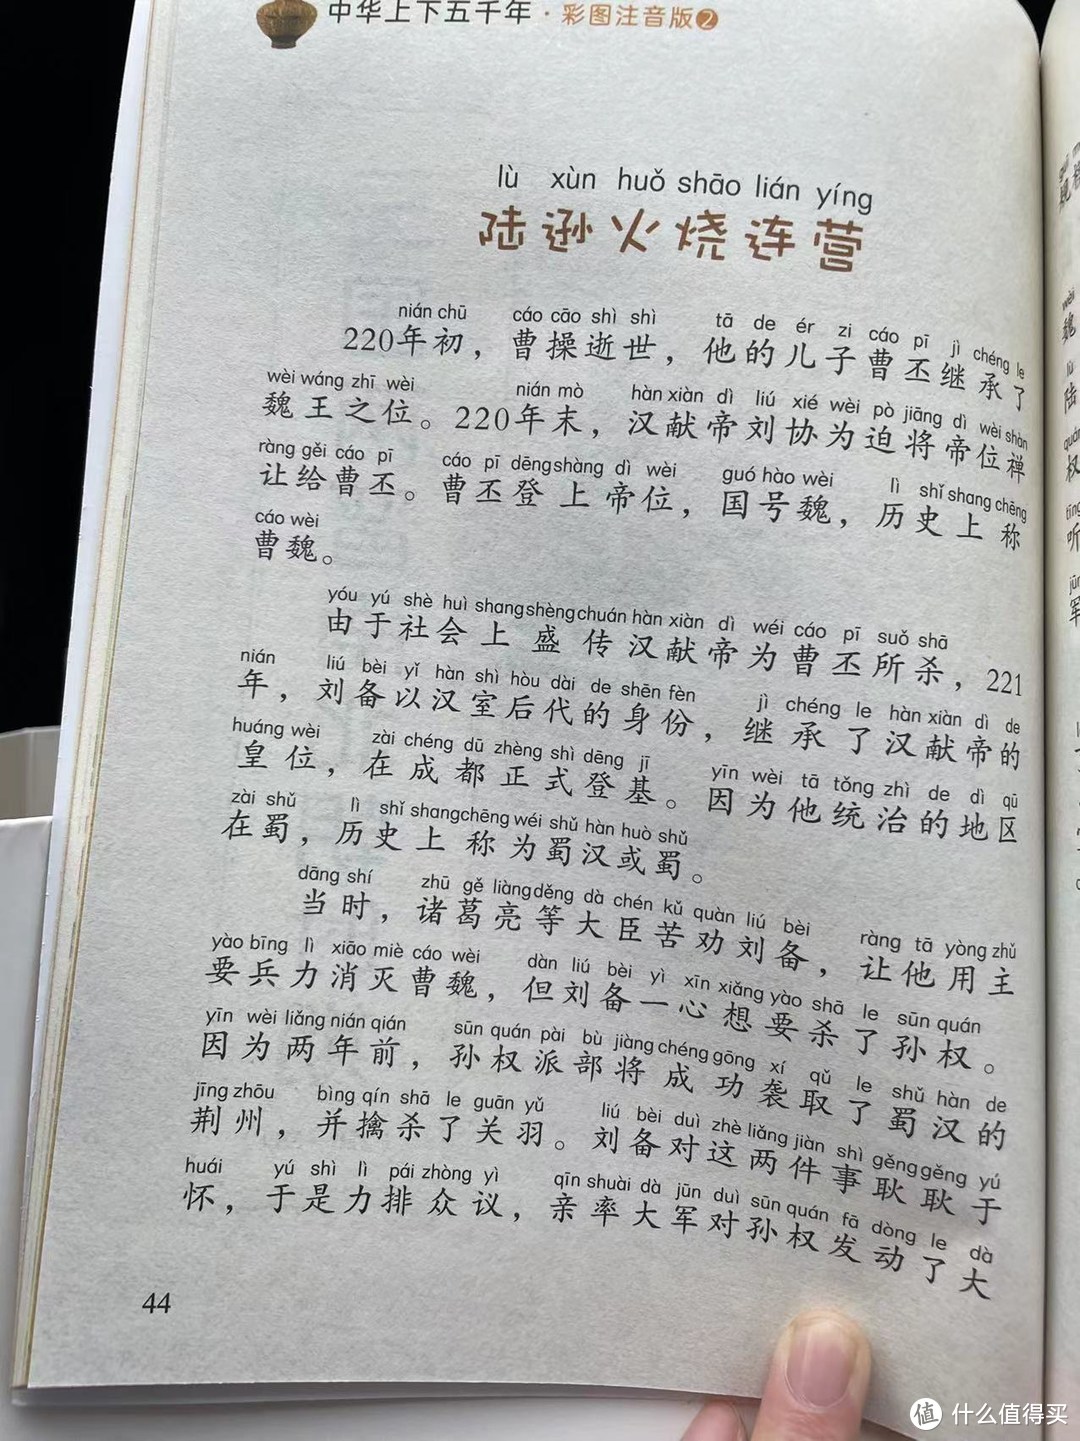 中华上下五千年·彩图注音版2
lù xùn huǒ shāo lián yíng
陆逊火烧连营
nián chū cáo cāo shì shì tā de ér zi cáo pī jì chéng le
220年初，曹操逝世，他的儿子曹丕继承了
wèi wáng zhī wèi nián mò hàn xiàn dì liú xié wèi pò jiāng dì wèi shàn
魏王之位。220年末，汉献帝刘协为迫将帝位禅
ràng gěi cáo pī cáo pī dēng shàng dì wèi guó hào wèi lì shǐ shang chēng
让给曹丕。曹丕登上帝位，国号魏，历史上称
cáo wèi
曹魏。
yóu yú shè huì shang shèng chuán hàn xiàn dì wéi cáo pī suǒ shā
由于社会上盛传汉献帝为曹丕所杀，221
nián liú bèi yǐ hàn shì hòu dài de shēn fèn jì chéng le hàn xiàn dì de
年，刘备以汉室后代的身份，继承了汉献帝的
huáng wèi zài chéng dū zhèng shì dēng jī yīn wèi tā tǒng zhì de dì qū
皇位，在成都正式登基。因为他统治的地区
zài shǔ lì shǐ shang chēng wéi shǔ hàn huò shǔ
在蜀，历史上称为蜀汉或蜀。
dāng shí zhū gě liàng děng dà chén kǔ quàn liú bèi ràng tā yòng zhǔ
当时，诸葛亮等大臣苦劝刘备，让他用主
yào bīng lì xiāo miè cáo wèi dàn liú bèi yì xīn xiǎng yào shā le sūn quán
要兵力消灭曹魏，但刘备一心想要杀了孙权。
yīn wèi liǎng nián qián sūn quán pài bù jiàng chéng gōng xí qǔ le shǔ hàn de
因为两年前，孙权派部将成功袭取了蜀汉的
jīng zhōu bìng qín shā le guān yǔ liú bèi duì zhè liǎng jiàn shì gěng gěng yú
荆州，并擒杀了关羽。刘备对这两件事耿耿于
huái yú shì lì pái zhòng yì qīn shuài dà jūn duì sūn quán fā dòng le dà
怀，于是力排众议，亲率大军对孙权发动了大
44
值 什么值得买